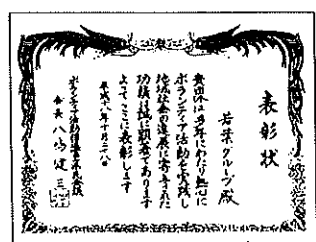 表彰状
若葉グループ殿
貴団体は多年にわたり熱心に
ボランティア活動を実践し
地域社会の進展に寄与された
功績は誠に顕著であります
よってここに表彰します
平成十八年十月二十八日
ボランティア活動推進
会長 八